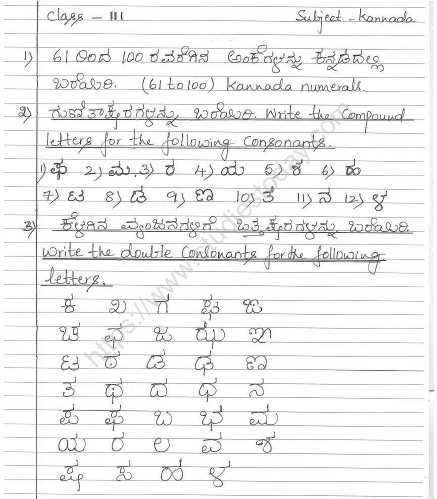 Class - III Subject - Kannada
1) 61 ರಿಂದ 100 ರವರೆಗಿನ ಅಂಕೆಗಳನ್ನು ಕನ್ನಡದಲ್ಲಿ
ಬರೆಯಿರಿ. (61 to 100) Kannada numerals.
2) ಗುಣಿತಾಕ್ಷರಗಳನ್ನು ಬರೆಯಿರಿ. Write the Compound
letters for the following Consonants.
1) ಫ 2) ಮ 3) ರ 4) ಯ 5) ಶ 6) ಹ
7) ಟ 8) ಡ 9) ಣ 10) ತ 11) ನ 12) ಳ
3) ಕೆಳಗಿನ ವ್ಯಂಜನಗಳಿಗೆ ಒತ್ತಕ್ಷರಗಳನ್ನು ಬರೆಯಿರಿ
Write the double Consonants for the following
letters.
ಕ ಖ ಗ ಘ ಙ
ಚ ಛ ಜ ಝ ಞ
ಟ ಠ ಡ ಢ ಣ
ತ ಥ ದ ಧ ನ
ಪ ಫ ಬ ಭ ಮ
ಯ ರ ಲ ವ ಶ
ಷ ಸ ಹ ಳ
https://www.studiestoday.com